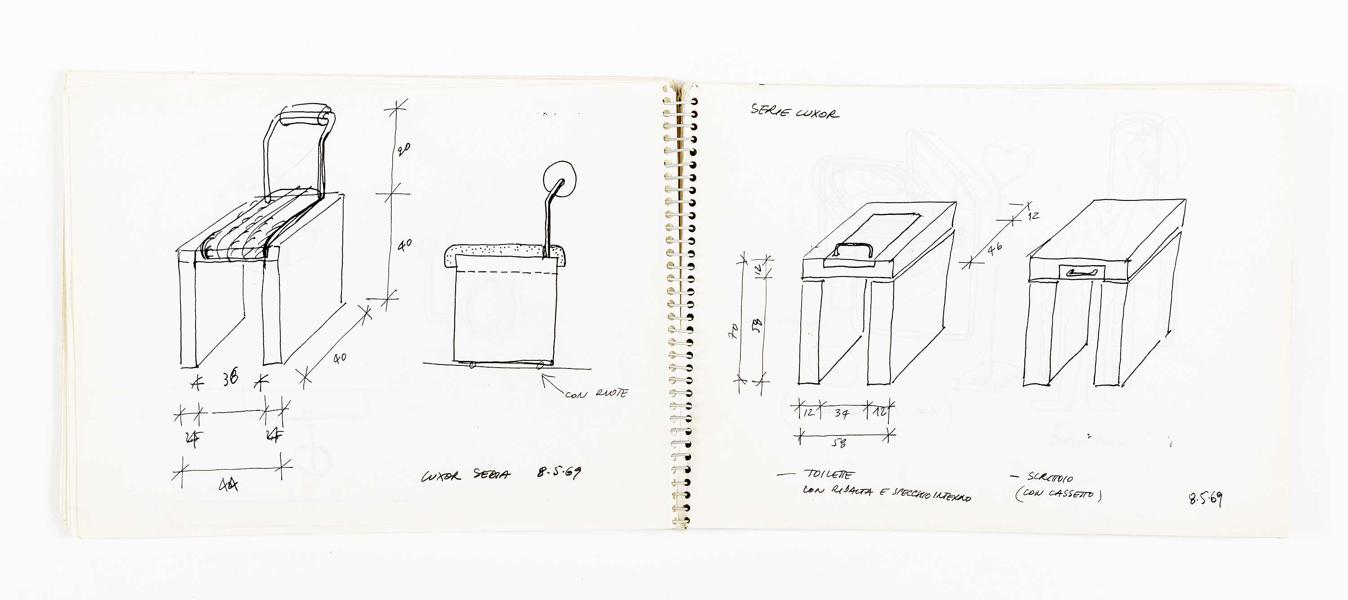 20
40
40
36
44
CON RUOTE
LUXOR SEDIA 8.5.69
SERIE LUXOR
12
46
12
70
58
12 34 12
58
— TOILETTE
CON RIBALTA E SPECCHIO INTERNO
— SCRITTOIO
(CON CASSETTO)
8.5.69